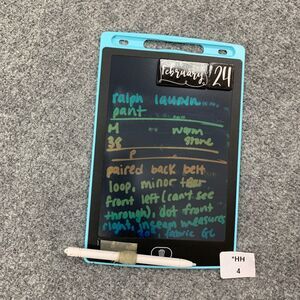 february 24
ralph lauren
pant
M worn
38 stone
P
paired back belt
loop, minor
front left (can't see
through), dot front
right, inseam measures
30", fabric GC
"HH
4